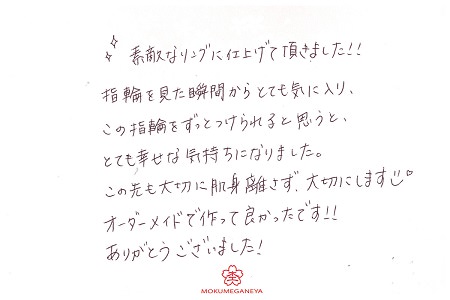 素敵なリングに仕上げて頂きました!!
指輪を見た瞬間からとても気に入り、
この指輪をずっとつけられると思うと、
とても幸せな気持ちになりました。
この先も大切に肌身離さず、大切にします
オーダーメイドで作って良かったです!!
ありがとうございました!
MOKUMEGANEYA